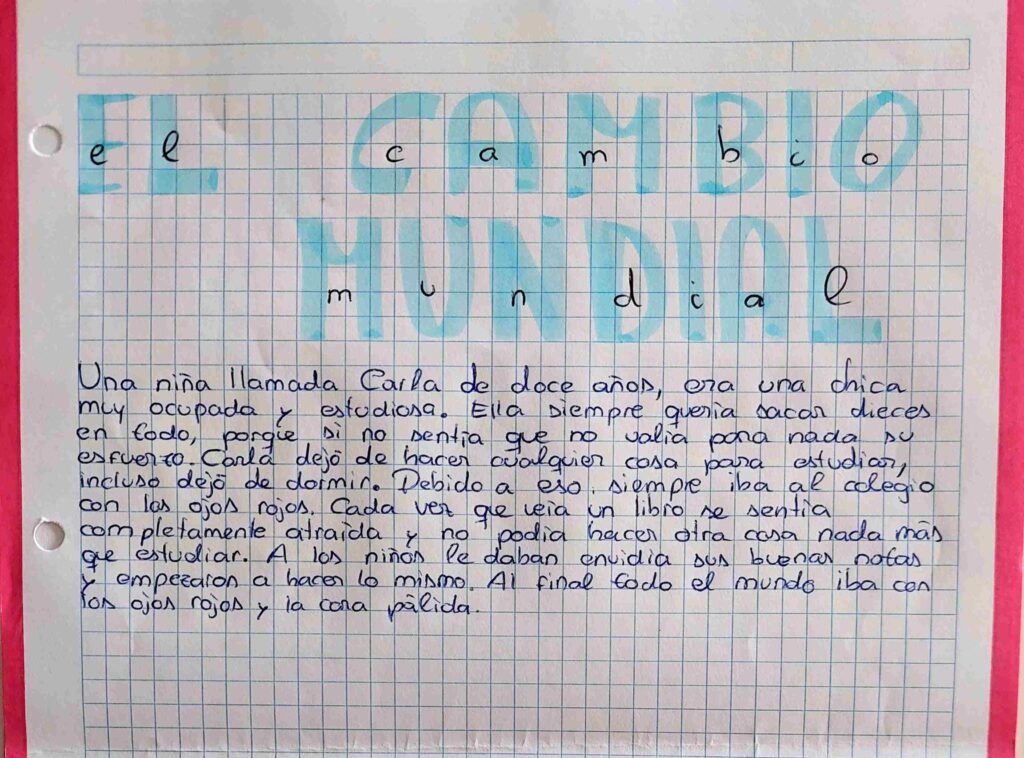 EL CAMBIO
el cambio
MUNDIAL
mundial
Una niña llamada Carla de doce años, era una chica
muy ocupada y estudiosa. Ella siempre quería sacar dieces
en todo, porque si no sentía que no valía para nada su
esfuerzo. Carla dejó de hacer cualquier cosa para estudiar,
incluso dejó de dormir. Debido a eso, siempre iba al colegio
con los ojos rojos. Cada vez que veía un libro se sentía
completamente atraída y no podía hacer otra cosa nada más
que estudiar. A los niños le daban envidia sus buenas notas
y empezaron a hacer lo mismo. Al final todo el mundo iba con
los ojos rojos y la cara pálida.